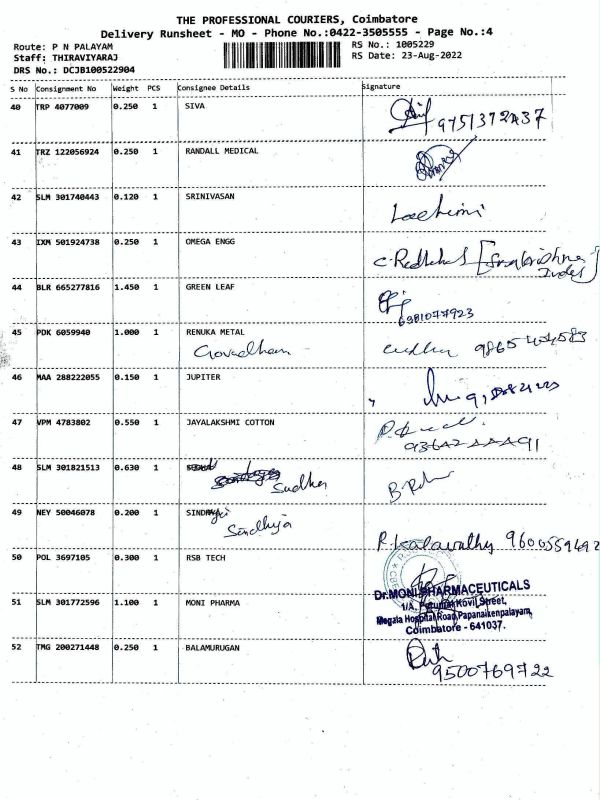 THE PROFESSIONAL COURIERS, Coimbatore
Delivery Runsheet - MO - Phone No.:0422-3505555 - Page No.:4
Route: P N PALAYAM
RS No.: 1005229
Staff: THIRAVIYARAJ
RS Date: 23-Aug-2022
DRS No.: DCJB100522904
S No Consignment No Weight PCS Consignee Details Signature
40 TRP 4077009 0.250 1 SIVA
41 TRZ 122056924 0.250 1 RANDALL MEDICAL
42 SLM 301740443 0.120 1 SRINIVASAN
43 IXM 501924738 0.250 1 OMEGA ENGG
44 BLR 665277816 1.450 1 GREEN LEAF
6381077923
45 PDK 6059940 1.000 1 RENUKA METAL
46 MAA 288222055 0.150 1 JUPITER
47 VPM 4783802 0.550 1 JAYALAKSHMI COTTON
48 SLM 301821513 0.630 1
Sudher
49 NEY 50046078 0.200 1
Sindhuja
R. Kalavathy 9600559492
50 POL 3697105 0.300 1 RSB TECH
Dr.MONI PHARMACEUTICALS
51 SLM 301772596 1.100 1 MONI PHARMA
1/A, Perumal Kovil Street,
Megala Hospital Road, Papanaikenpalayam,
Coimbatore - 641037.
52 TMG 200271448 0.250 1 BALAMURUGAN
9500769722